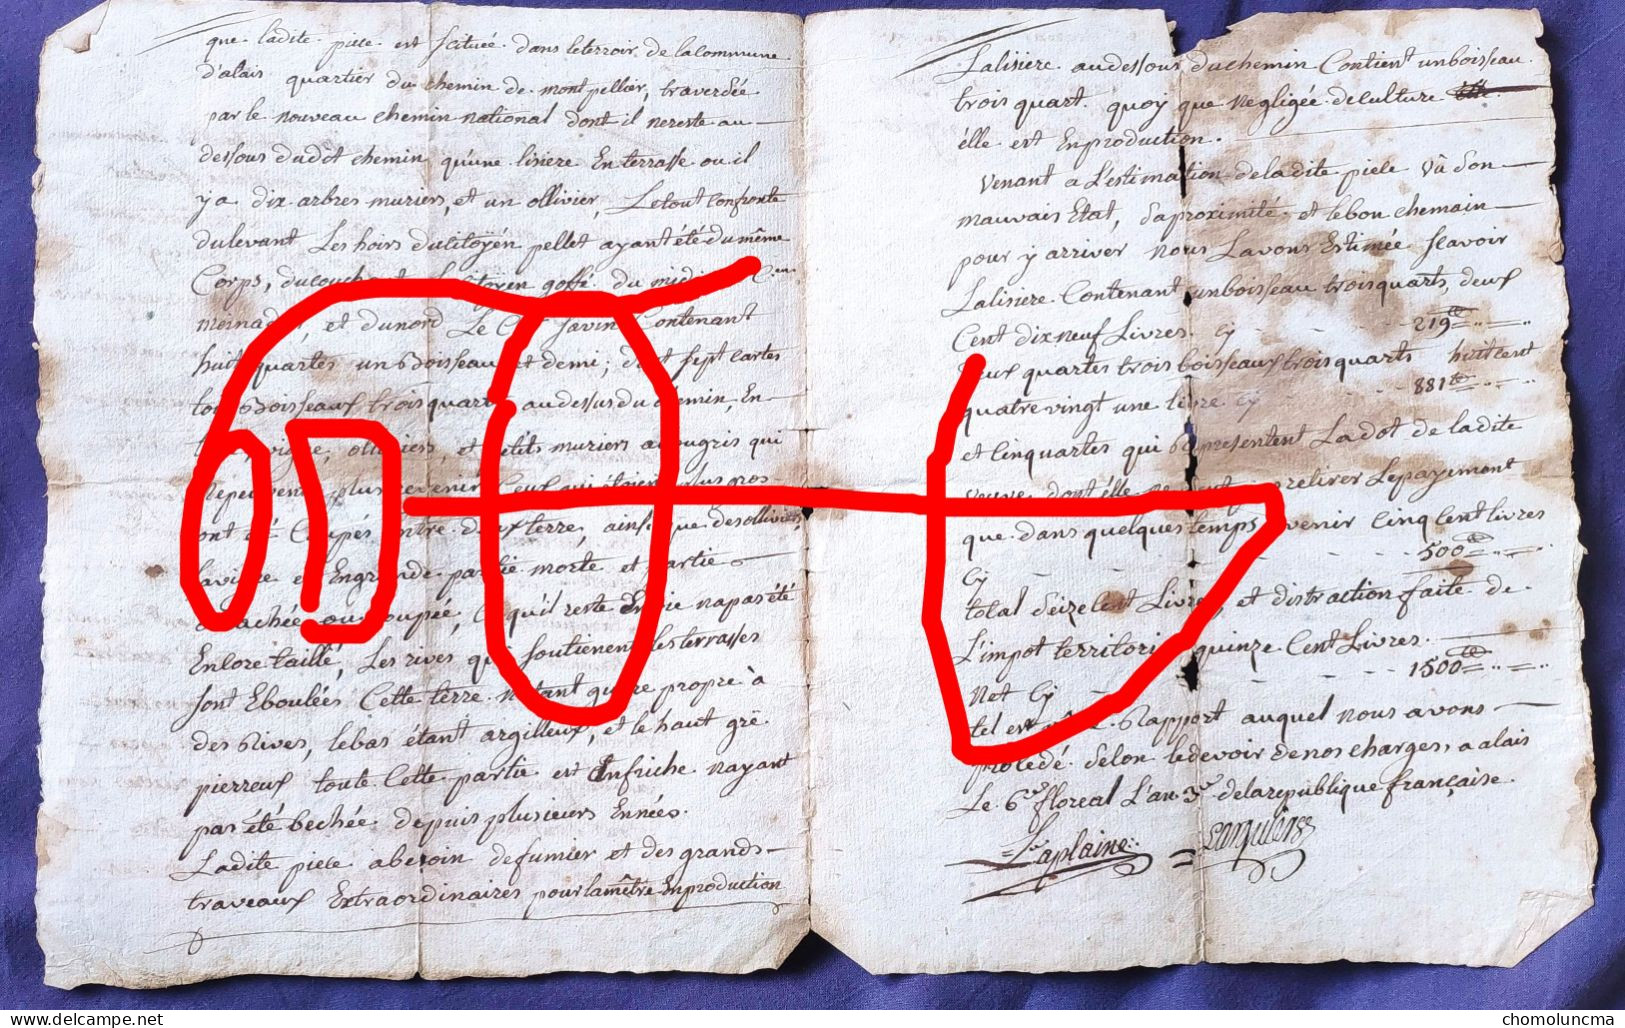 que ladite piece est scituée dans leterroir de lacommune
d'alais quartier du chemin de montpellier, traversée
par le nouveau chemin national dont il nereste au
dessous dudot chemin qu'une lisiere En terrasse ou il
y a dix arbres muriers, et un ollivier, Letout confronte
dulevant Les hoirs ducitoÿen pellet ayant été du même
Corps, ducouchant goffe du midi
et dunord Le Savin Contenant
huit quartes un Boisseau et demi; dont sept cartes
Boisseaux trois quarts audessus du chemin, En
et petits muriers qui
plus revenir Ceux qui étoient plus gros
ont été Coupés entre deux terre, ainsi que des olliviers,
lavigne et Engrande partie morte et partie
arrachée ou coupée, Ce qu'il reste En vie napas été
Enlore taillé, Les rives qui soutienent les terrasses
sont Eboulées Cette terre n'etant guere propre à
des Rives, lebas étant argilleux, et le haut gré
pierreux toute Cette partie est Enfriche nayant
pas été bechée depuis plusieurs Ennées.
Ladite piece abesoin defumier et des grands
traveaux Extraordinaires pour lamêtre Enproduction
Lalisiere audessous du chemin Contient unboisseau
trois quart quoy que negligée deculture
élle est Enproduction.
Venant a L'estimation deladite piece Vû son
mauvais Etat, saproximité et lebon chemain
pour y arriver nous Lavons Estimée scavoir
Lalisiere Contenant unboisseau troisquarts, deux
Cent dixneuf Livres. Cy 219
deux quartes trois boisseaux trois quarts huit cent
quatrevingt une livre Cy 881
et Cinquartes qui Representent Ladot de ladite
veuve dont élle ne peut retirer Lepayemont
que dans quelques temps avenir Cinq Cent livres
Cy 500
total Seize Cent Livres, et distraction faite de
L'impot territorial quinze Cent Livres.
Net Cy 1500
tel est Rapport auquel nous avons
procédé selon ledevoir denos charges, a alais
Le 6 floreal L'an 3 delarepublique française.
Laplaine
chomoluncma
www.delcampe.net